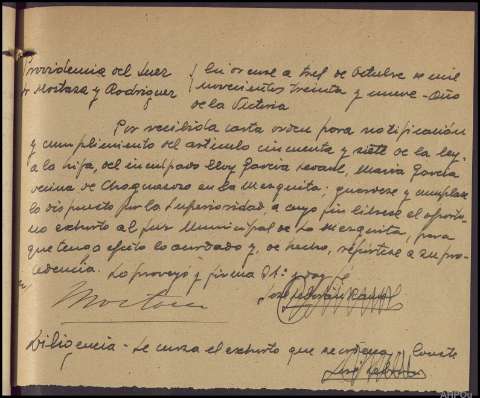 Providencia del Juez
Sr Mostaza y Rodriguez
En orense a tres de Octubre de mil
novecientos treinta y nueve - Año
de la Victoria
Por recibida carta orden para notificación
y cumplimiento del articulo cincuenta y siete de la ley
a la hija, del inculpado Eloy Garcia, Maria Garcia
vecina de Chaguazoso en La Mezquita. guardese y cumplase
lo dispuesto por la Superioridad a cuyo fin librese el oportu-
no exhorto al Juez Municipal de La Mezquita, para
que tenga efecto lo acordado y, de hecho, repórtese a su pro-
cedencia. Lo proveyó y firma S.Sª y doy fé
Mostaza
Diligencia - Se cursa el exhorto que se ordena
AHPOu